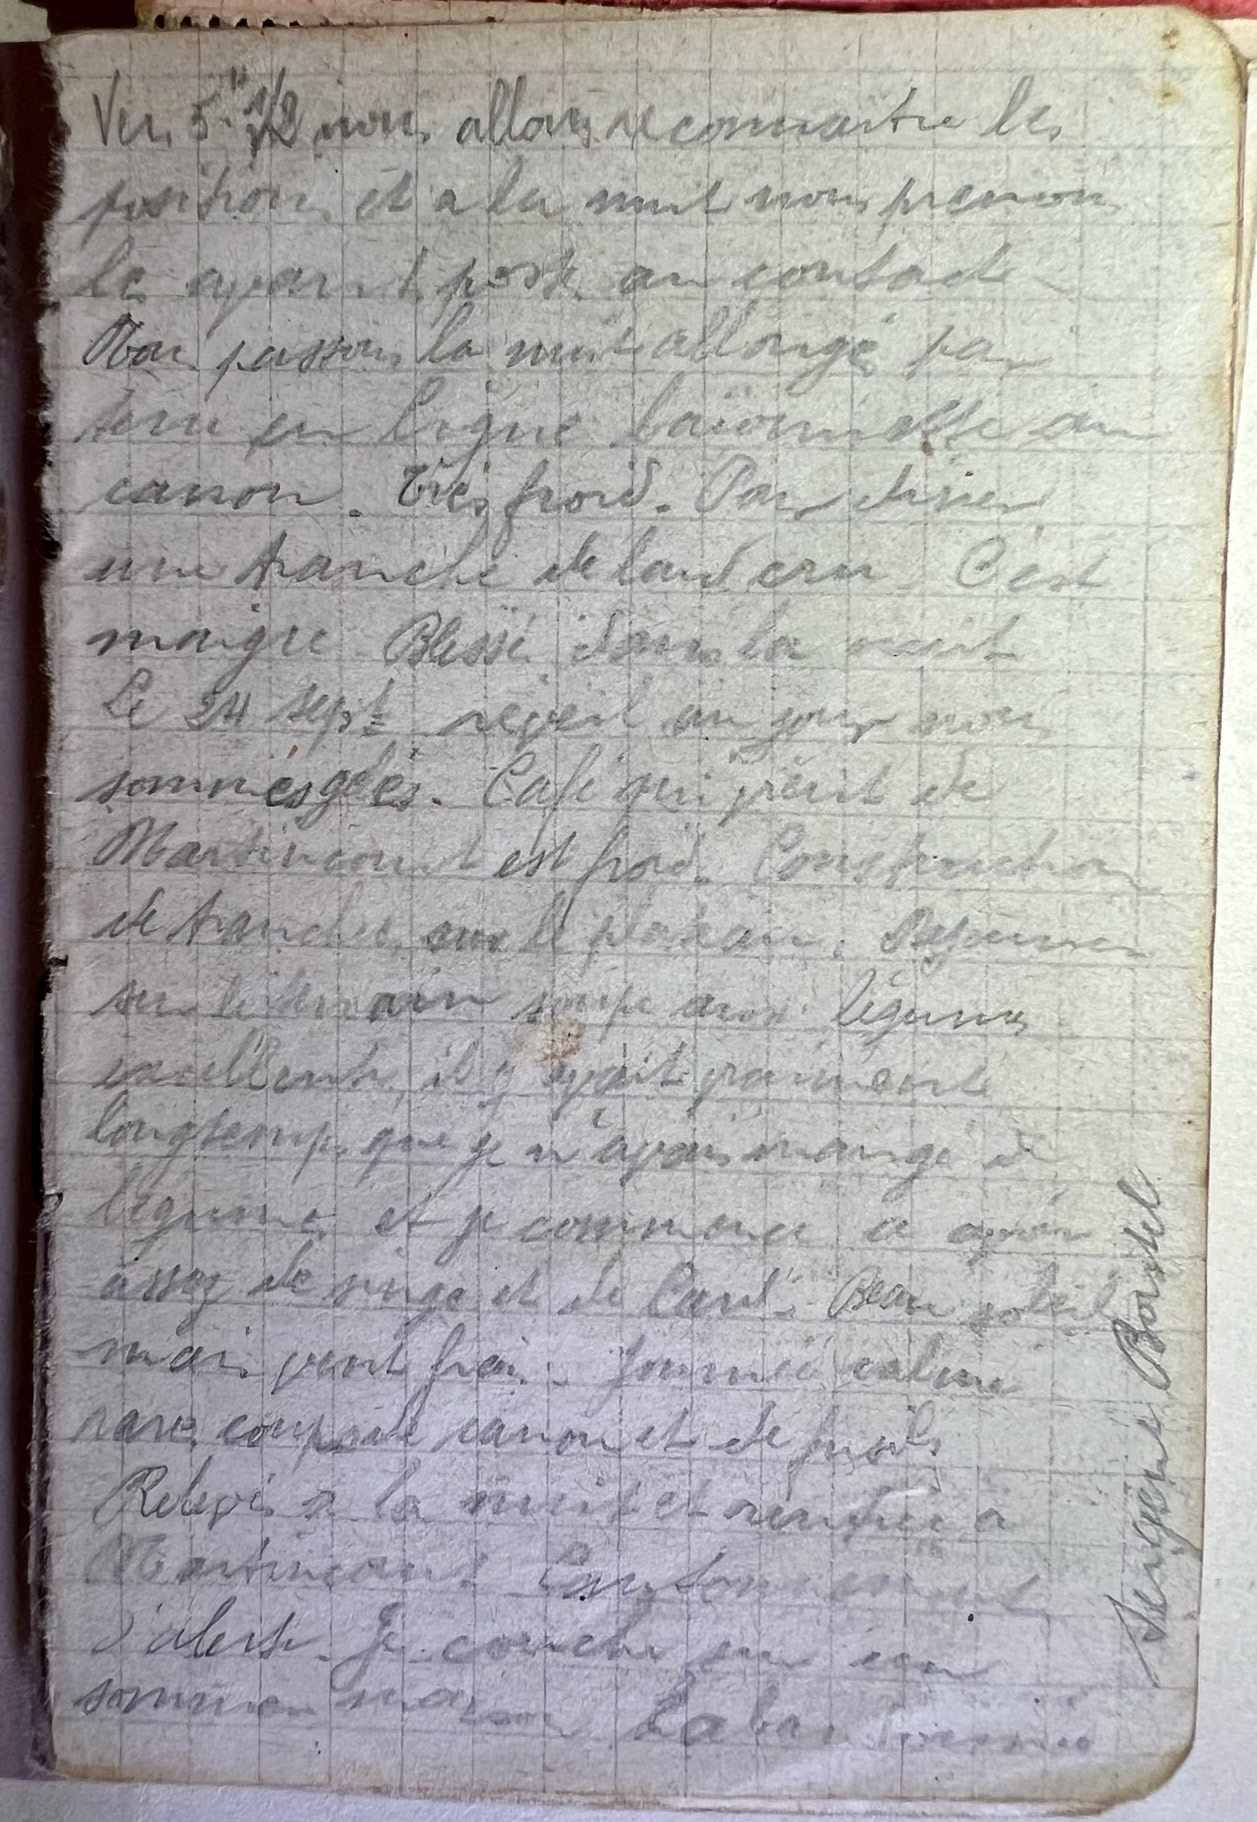 Vers 5h 1/2 nous allons reconnaitre les
positions et a la nuit nous prenons
les avant postes au contact
Nous passons la nuit allongés par
terre en ligne baïonnette au
canon. Très froid. Pour diner
une tranche de lard cru C'est
maigre Blessé dans la nuit
Le 24 sept réveil au jour nous
sommes gelés. Café qui vient de
Martincourt est froid. Construction
de tranchés sur le plateau.
sur le terrain soupe aux légumes
excellente, il y avait vraiment
longtemps que je n'avais mangé de
légumes et je commence a avoir
assez de singe et de lard. Beau soleil
mais vent frais. Journée calme
rares coups de canon et de fusils
Relevés a la nuit et rentrée a
Martincourt Cantonnement
d'alerte. Je couche sur un
sommier
Sergent Bordel